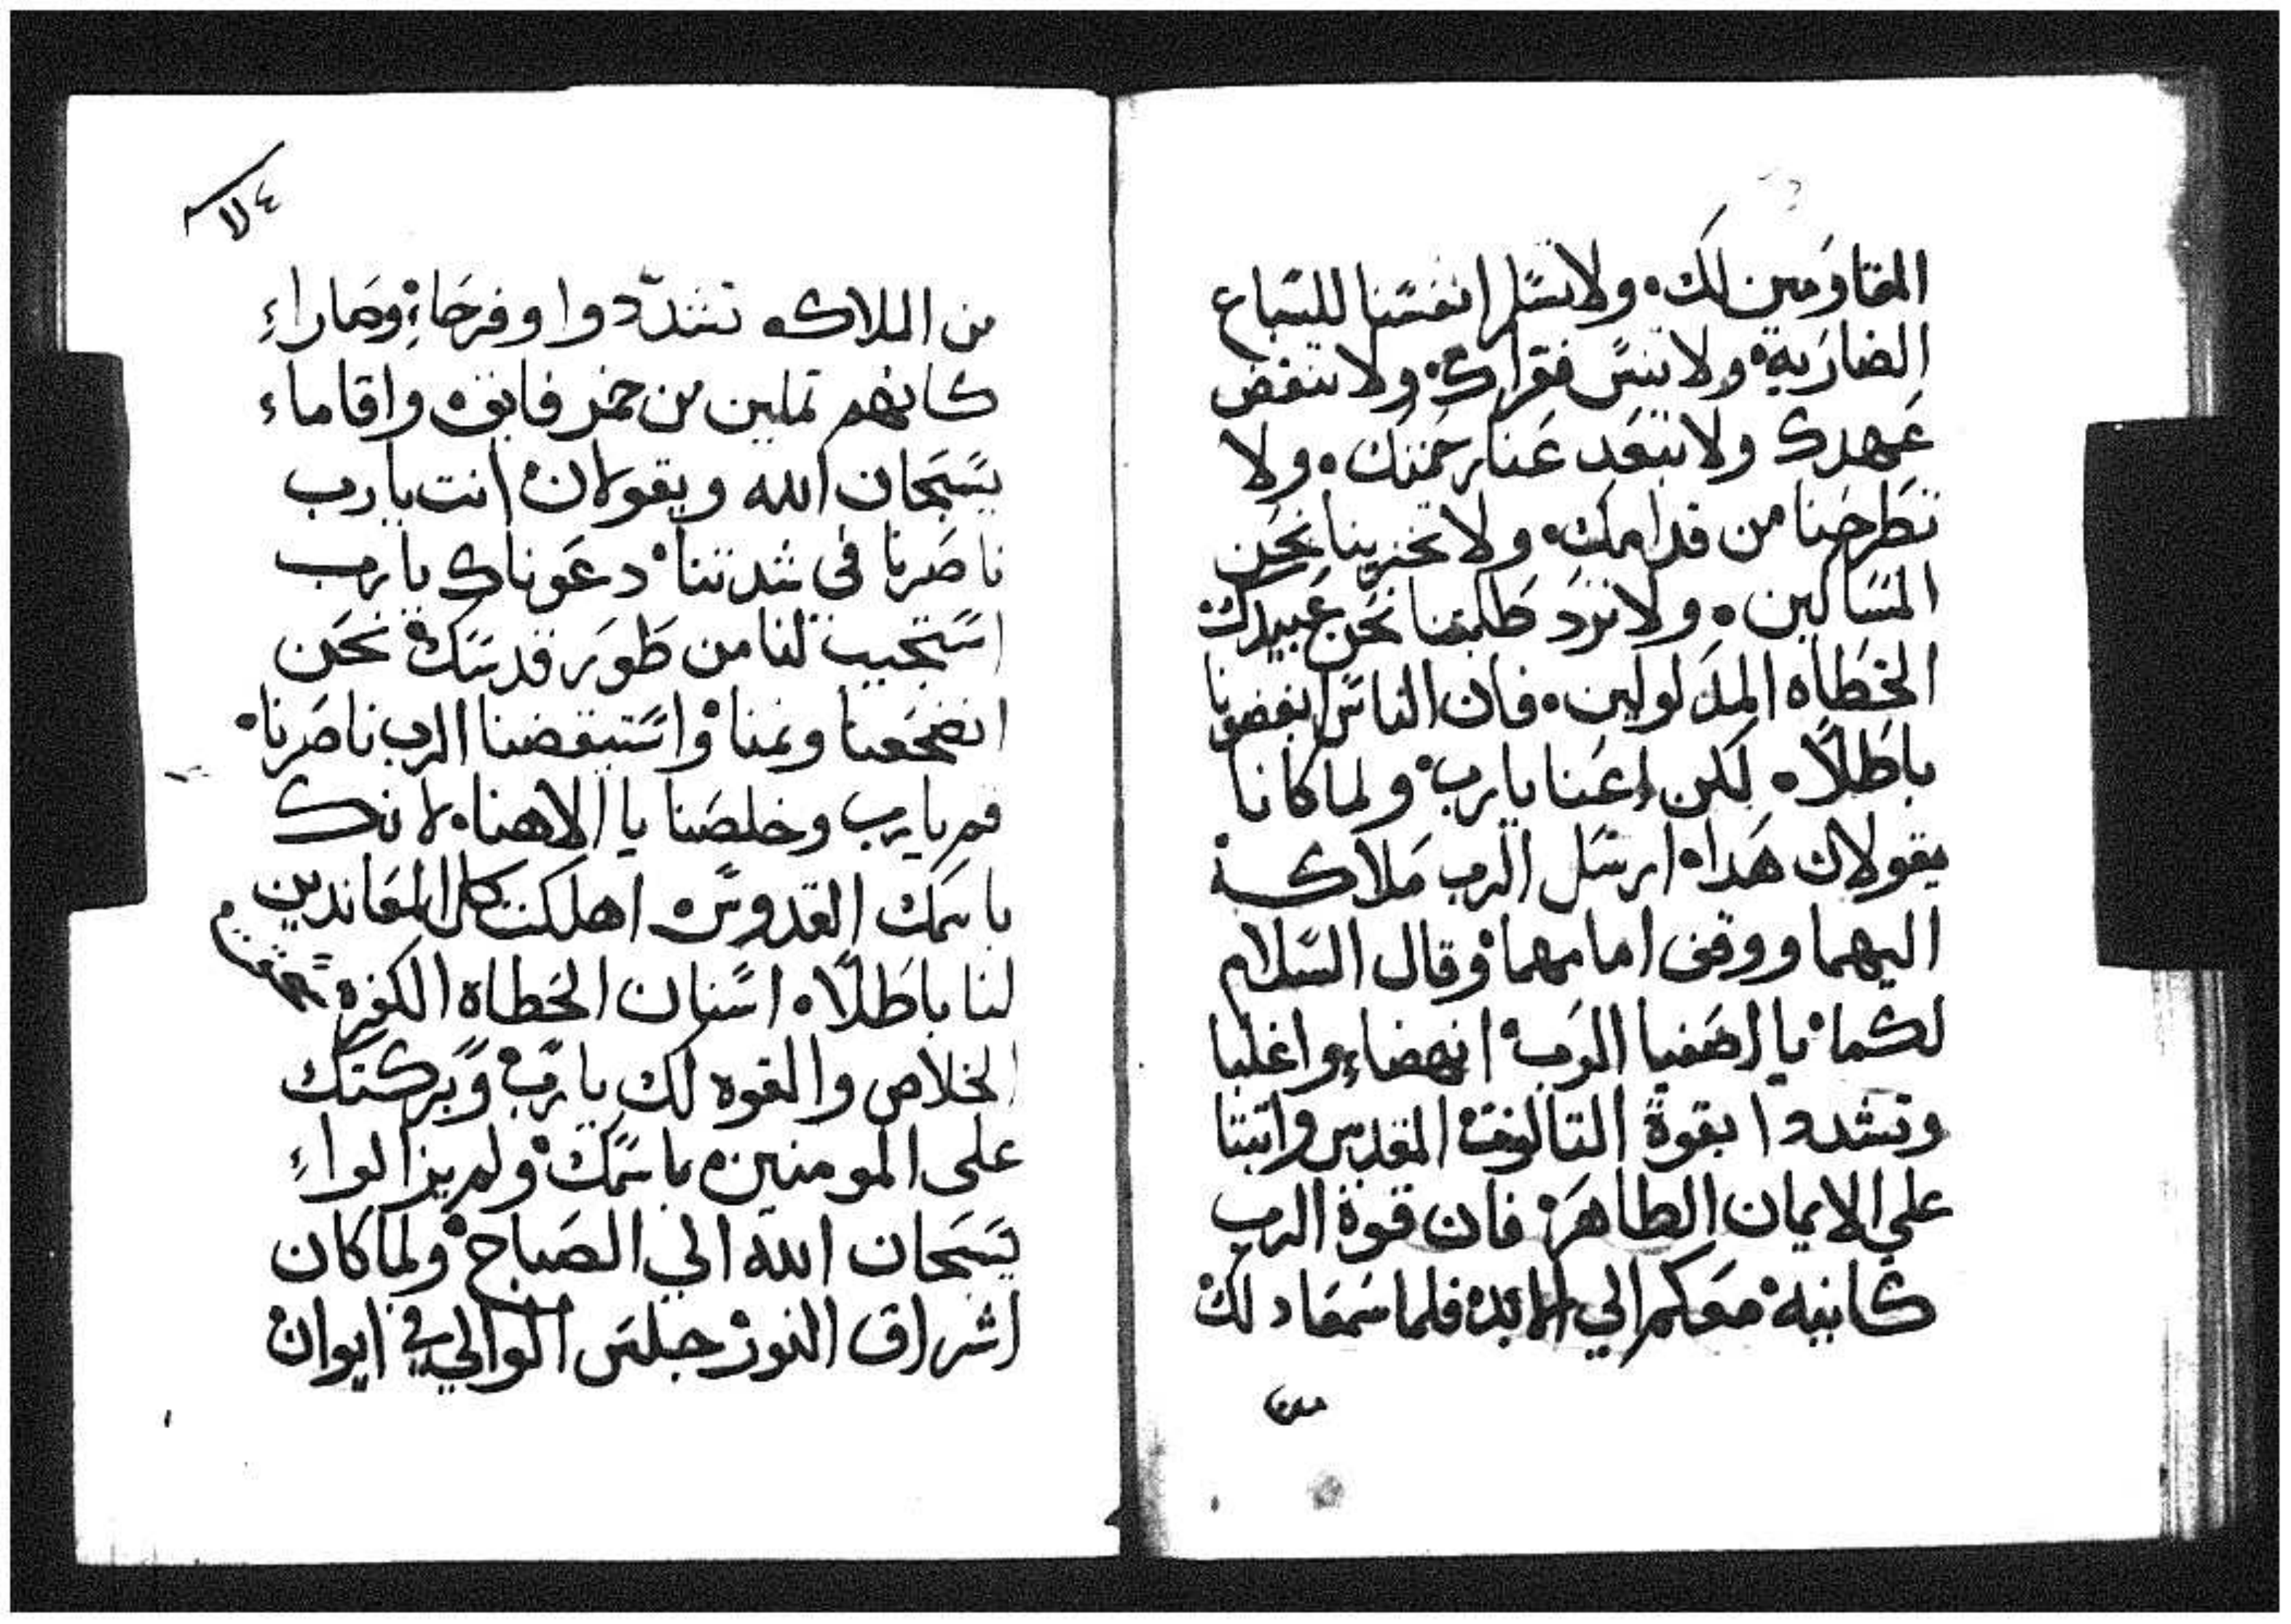 المقاومين لك. ولا تسلم انفسنا للسباع
الضاريه. ولا تنس فقراك. ولا تنقض
عهدك ولا تبعد عنا رحمتك. ولا
تطرحنا من قدامك. ولا تخزينا نحن
المساكين. ولا ترد طلبتنا نحن عبيدك
الخطاه المدلولين. فان الناس ابغضونا
باطلاً. لكن اعنا يارب. ولما كانا
يقولان هدا. ارسل الرب ملاكه
اليهما ووقف امامهما وقال السلام
لكما. يا اصفيا الرب. انهضا واغلبا
وتشددوا بقوة التالوت المقدس واتبتا
على الايمان الطاهر. فان قوة الرب
كاينه معكم الي الابد. فلما سمعا دلك
من الملاك. تشددوا وفرحا. وصارا
كانهم تملين من خمر فايق. واقاما
يسبحان الله ويقولان. انت يا رب
ناصرنا في شدتنا. دعوناك يارب
استجيب لنا من طور قدسك. نحن
انضجعنا ونمنا. واستيقضنا الرب ناصرنا.
قم يارب وخلصنا يا الاهنا. لانك
باسمك القدوس. اهلكت كل المعاندين
لنا باطلاً. اسنان الخطاه الكفره
الخلاص والقوه لك يارب. وبركتك
على المومنين باسمك. ولم يزالوا
يسبحان الله الي الصباح. ولما كان
اشراق النور جلس الوالي في ايوان